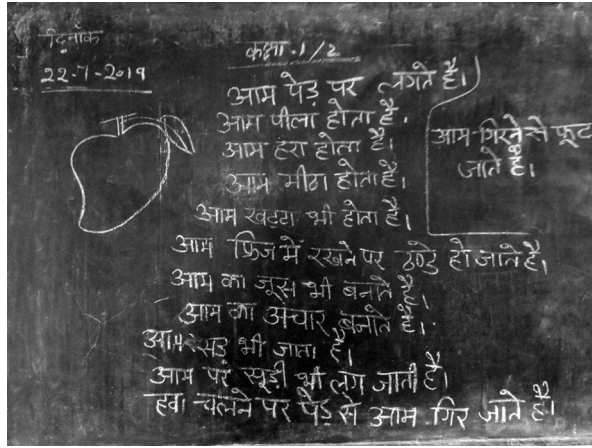 दिनाँक
22-7-2019
कक्षा-1/2
आम पेड़ पर लगते है।
आम पीला होता है।
आम हरा होता है।
आम मीठा होता है।
आम खट्टा भी होता है।
आम फ्रिज में रखने पर ठण्डे हो जाते है।
आम का जूस भी बनाते है।
आम का अचार बनाते है।
आम सड़ भी जाता है।
आम पर सूडी भी लग जाती है।
हवा चलने पर पेड़ से आम गिर जाते है।
आम गिरने से फूट
जाते है।